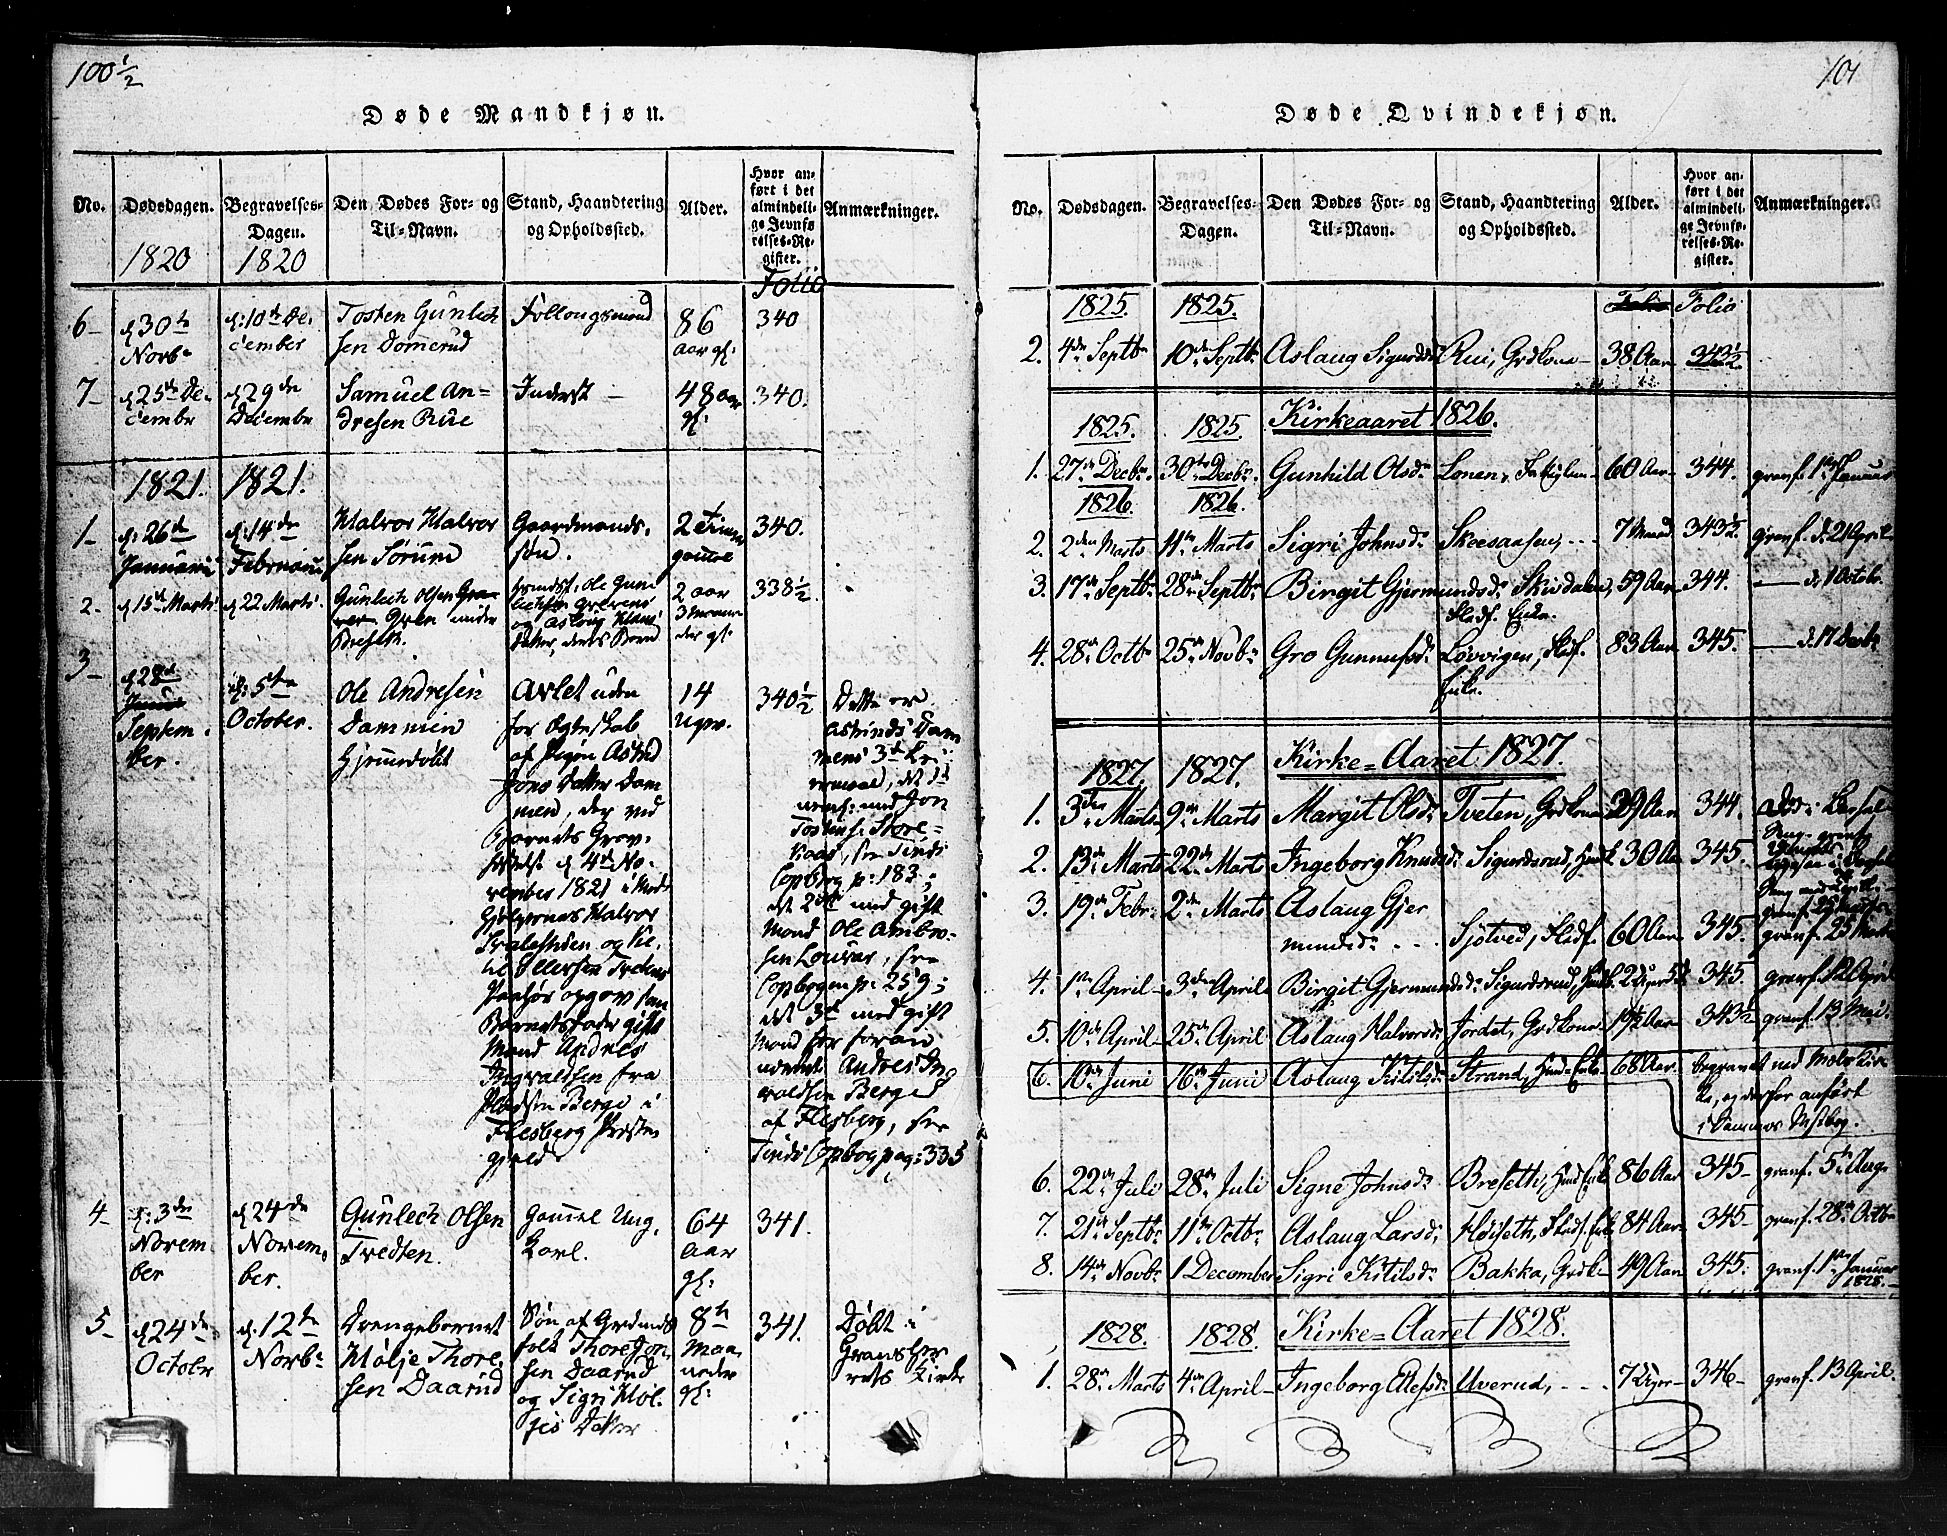 100 1/2
Døde Mandkjøn.
No.
Dødsdagen.
Begravelses-
Dagen.
Den Dødes For- og
Til-Navn.
Stand, Haandtering
og Opholdssted.
Alder.
Hvor an-
ført i det
almindeli-
ge Jevnfø-
relses-Re-
gister.
Anmærkninger.
1820
1820
Folio
6
d 30te
Novbr
d: 10de De-
cember
Tosten Gunlech
sen Dommerud
Follougsmand
86
aar gl:
340
7
d 25de De-
cembr
d 29de
Decembr
Samuel An-
dresen Rue
Inderst
48 aar
gl:
340.
1821.
1821.
1
d: 26de
Januarii
d: 14de
Februarii
Halvor Halvor
sen Sørum
Gaardmands-
søn.
2 Timer
gammel
340.
2
d 15de Marts
d 22 Marts
Gunlech Olsen
Gren under
Breseth.
2 aar
3 Maane
der gl:
338 1/2
3
d 28de
Septem-
ber.
d: 5te
October.
Ole Andresen
Dammen
Hjemmedøbt
Avlet uden
for Ægteskab
af Pigen Astrid
Jons Datter Dam
men, der ved
Barnets Grav-
fæstelse d 4de No-
vember 1821
Halvor
og Ki-
til Ellefsen Tveten
opgav som
Barnets Fader gift
Mand Andres
Ingvaldsen fra
Pladsen Berge i
Flesberg Præste
gjeld
14
Uger.
340 1/2
Dette er
Astrids Dam
mens 3de
det 1te
med Jon
Tostens: Store-
kaas, see Tinds
Copbog p: 183;
det 2det med gift
Mand Ole Ambro-
sen Louvar, see
Copbogen p: 259;
det 3de med gift
Mand før foran
nævnte Andres In
valdsen Berge
af Flesberg, see
Tinds Copbog pag: 335
4
d: 3de
Novem
ber
d 24de
Novem-
ber.
Gunlech Olsen
Tvedten.
Gammel Ung-
karl.
64
aar
gl:
341.
5
d 24de
Octobr
d: 12te
Novbr
Drengebarnet
Hølje Thore
sen Daarud
Søn af Grdmands
folk Thore Jon
sen Daarud
og Sigri Høl-
jes Datter
8te
Maa-
neder
gl:
341.
Døbt i
Gransher
reds Kirke
101
Døde Qvindekjøn.
No.
Dødsdagen.
Begravelses-
Dagen.
Den Dødes For- og
Til-Navn.
Stand, Haandtering
og Opholdssted.
Alder.
Hvor an-
ført i det
almindeli-
ge Jevnfø-
relses-Re-
gister.
Anmærkninger.
1825. 1825. Folio
2. 4de Septbr 10de Septbr Aslaug Sigurdsdr Rui, Grdkone 38 Aar 343 1/2.
1825. 1825. Kirkeaaret 1826.
1. 27de Decbr. 30te Decbr. Gunhild Olsdr Lonen, 60 Aar 344. granf. 1ste Januar
1826. 1826.
2. 2den Marts 11te Marts Sigri Johnsdr Skeesaasen, 7 Maand 343 1/2. granf. d. 21 April
3. 17de Septbr 28de Septbr Birgit Gjermundsdr Skirdalen, 59 Aar 344. — d. 1 Octobr.
Pladsf. Enke.
4. 28de Octbr 25de Novbr Gro Gunnufsdr Løvvigen, Pladsf. 83 Aar 345. — d. 17 Decbr
Enke.
1827. 1827. Kirke=Aaret 1827.
1. 3den Marts 9de Marts Margit Olsdr Tveten, Grdkone 39 Aar 344.
2. 13de Marts 22de Marts Ingeborg Knudsdr Sigurdsrud, 30 Aar 345.
3. 19de Febr: 2den Marts Aslaug Gjer
mundsdr Sjøtved, Pladsf. 60 Aar 345. granf. 25 Marts
4. 1ste April 3die April Birgit Gjermundsdr Sigurdsrud, 345. granf. 12 April
5. 10de April 25de April Aslaug Halvorsdr Jordet, Grdkone 343 1/2 granf. 13 Mai.
6. 10de Juni 16de Juni Aslaug Kitilsdr Strand, Huusm. Enke 68 Aar. begravet ved Moland Kir
ke, og derfor anført
6. 22de Juli 28de Juli Signe Johnsdr Breseth, Huusm. Enke 86 Aar 345 granf. 5te Aug.
7. 21de Septbr 11te Octbr Aslaug Larsdr Høiseth, Pladsf. Enke 84 Aar 345 granf. 28de Octbr
8. 14de Novbr 1 December Sigri Kitilsdr Bakka, Grdk. 49 Aar 345. granf. 1ste Januar
1828.
1828. 1828. Kirke=Aaret 1828.
1. 28de Marts 4de April Ingeborg Ellefsdr Uverud, 7 Uger 346 granf. 13 April.